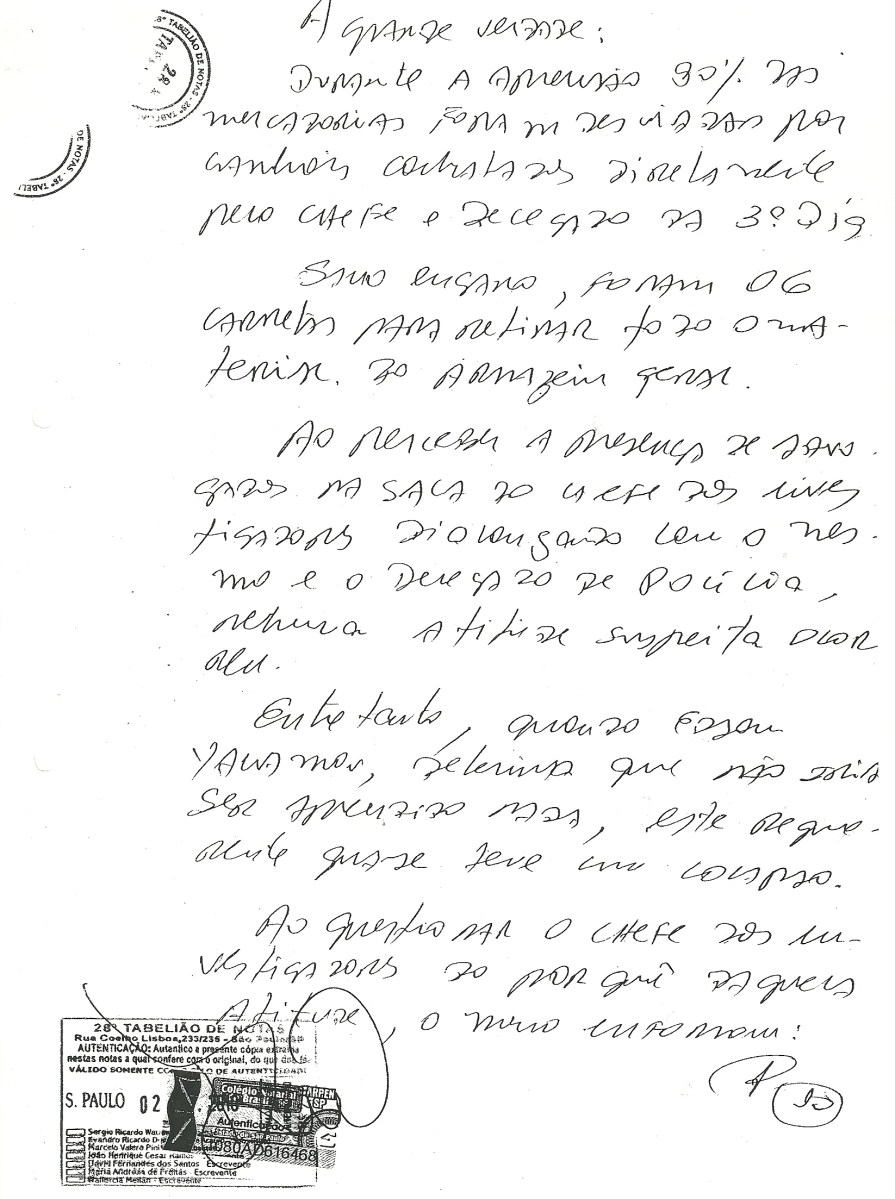 28º TABELIÃO DE NOTAS - 28º TABELIÃO
DE NOTAS - 28º TABELI
A grande verdade:
Durante a apreensão 90% das
mercadorias foram desviadas por
caminhões contratados diretamente
pelo chefe e Delegado da 3ª Dig
Salvo engano, foram 06
carretas para retirar todo o ma-
terial do armazém geral.
Ao perceber a presença de advo-
gados na sala do chefe dos inves
tigadores dialogando com o mes-
mo e o Delegado de Polícia,
nenhuma atitude suspeita ocor
reu.
Entretanto, quando Edson
determina que não iria
ser apreendido nada, este reque-
rente quase teve um colapso.
Ao questionar o chefe dos in-
vestigadores do por quê daquela
atitude, o mesmo informou:
28º TABELIÃO DE NOTAS
Rua Coelho Lisboa, 233/235 - São Paulo
AUTENTICAÇÃO: Autentico a presente cópia
nestas notas a qual confere com o original, do que dou fé.
VÁLIDO SOMENTE COM SELO DE AUTENTICIDADE
S. PAULO 02
Colégio Notarial
do Brasil
ARPEN
SP
Autenticação
1080AD616468
Sergio Ricardo
Evandro Ricardo
Marcelo Valero
João Henrique Cesar
David Fernandes dos Santos - Escrevente
Maria Andréia de Freitas - Escrevente
Escrevente